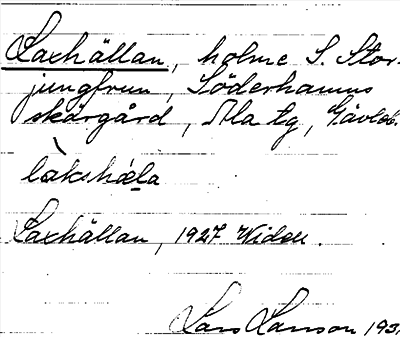 Laxhällan, holme S. Stor-
jungfrun, Söderhamns
skärgård, Ala tg, Gävleb.
làkshæla
Laxhällan, 1927 Widell.
Lars Larsson 193